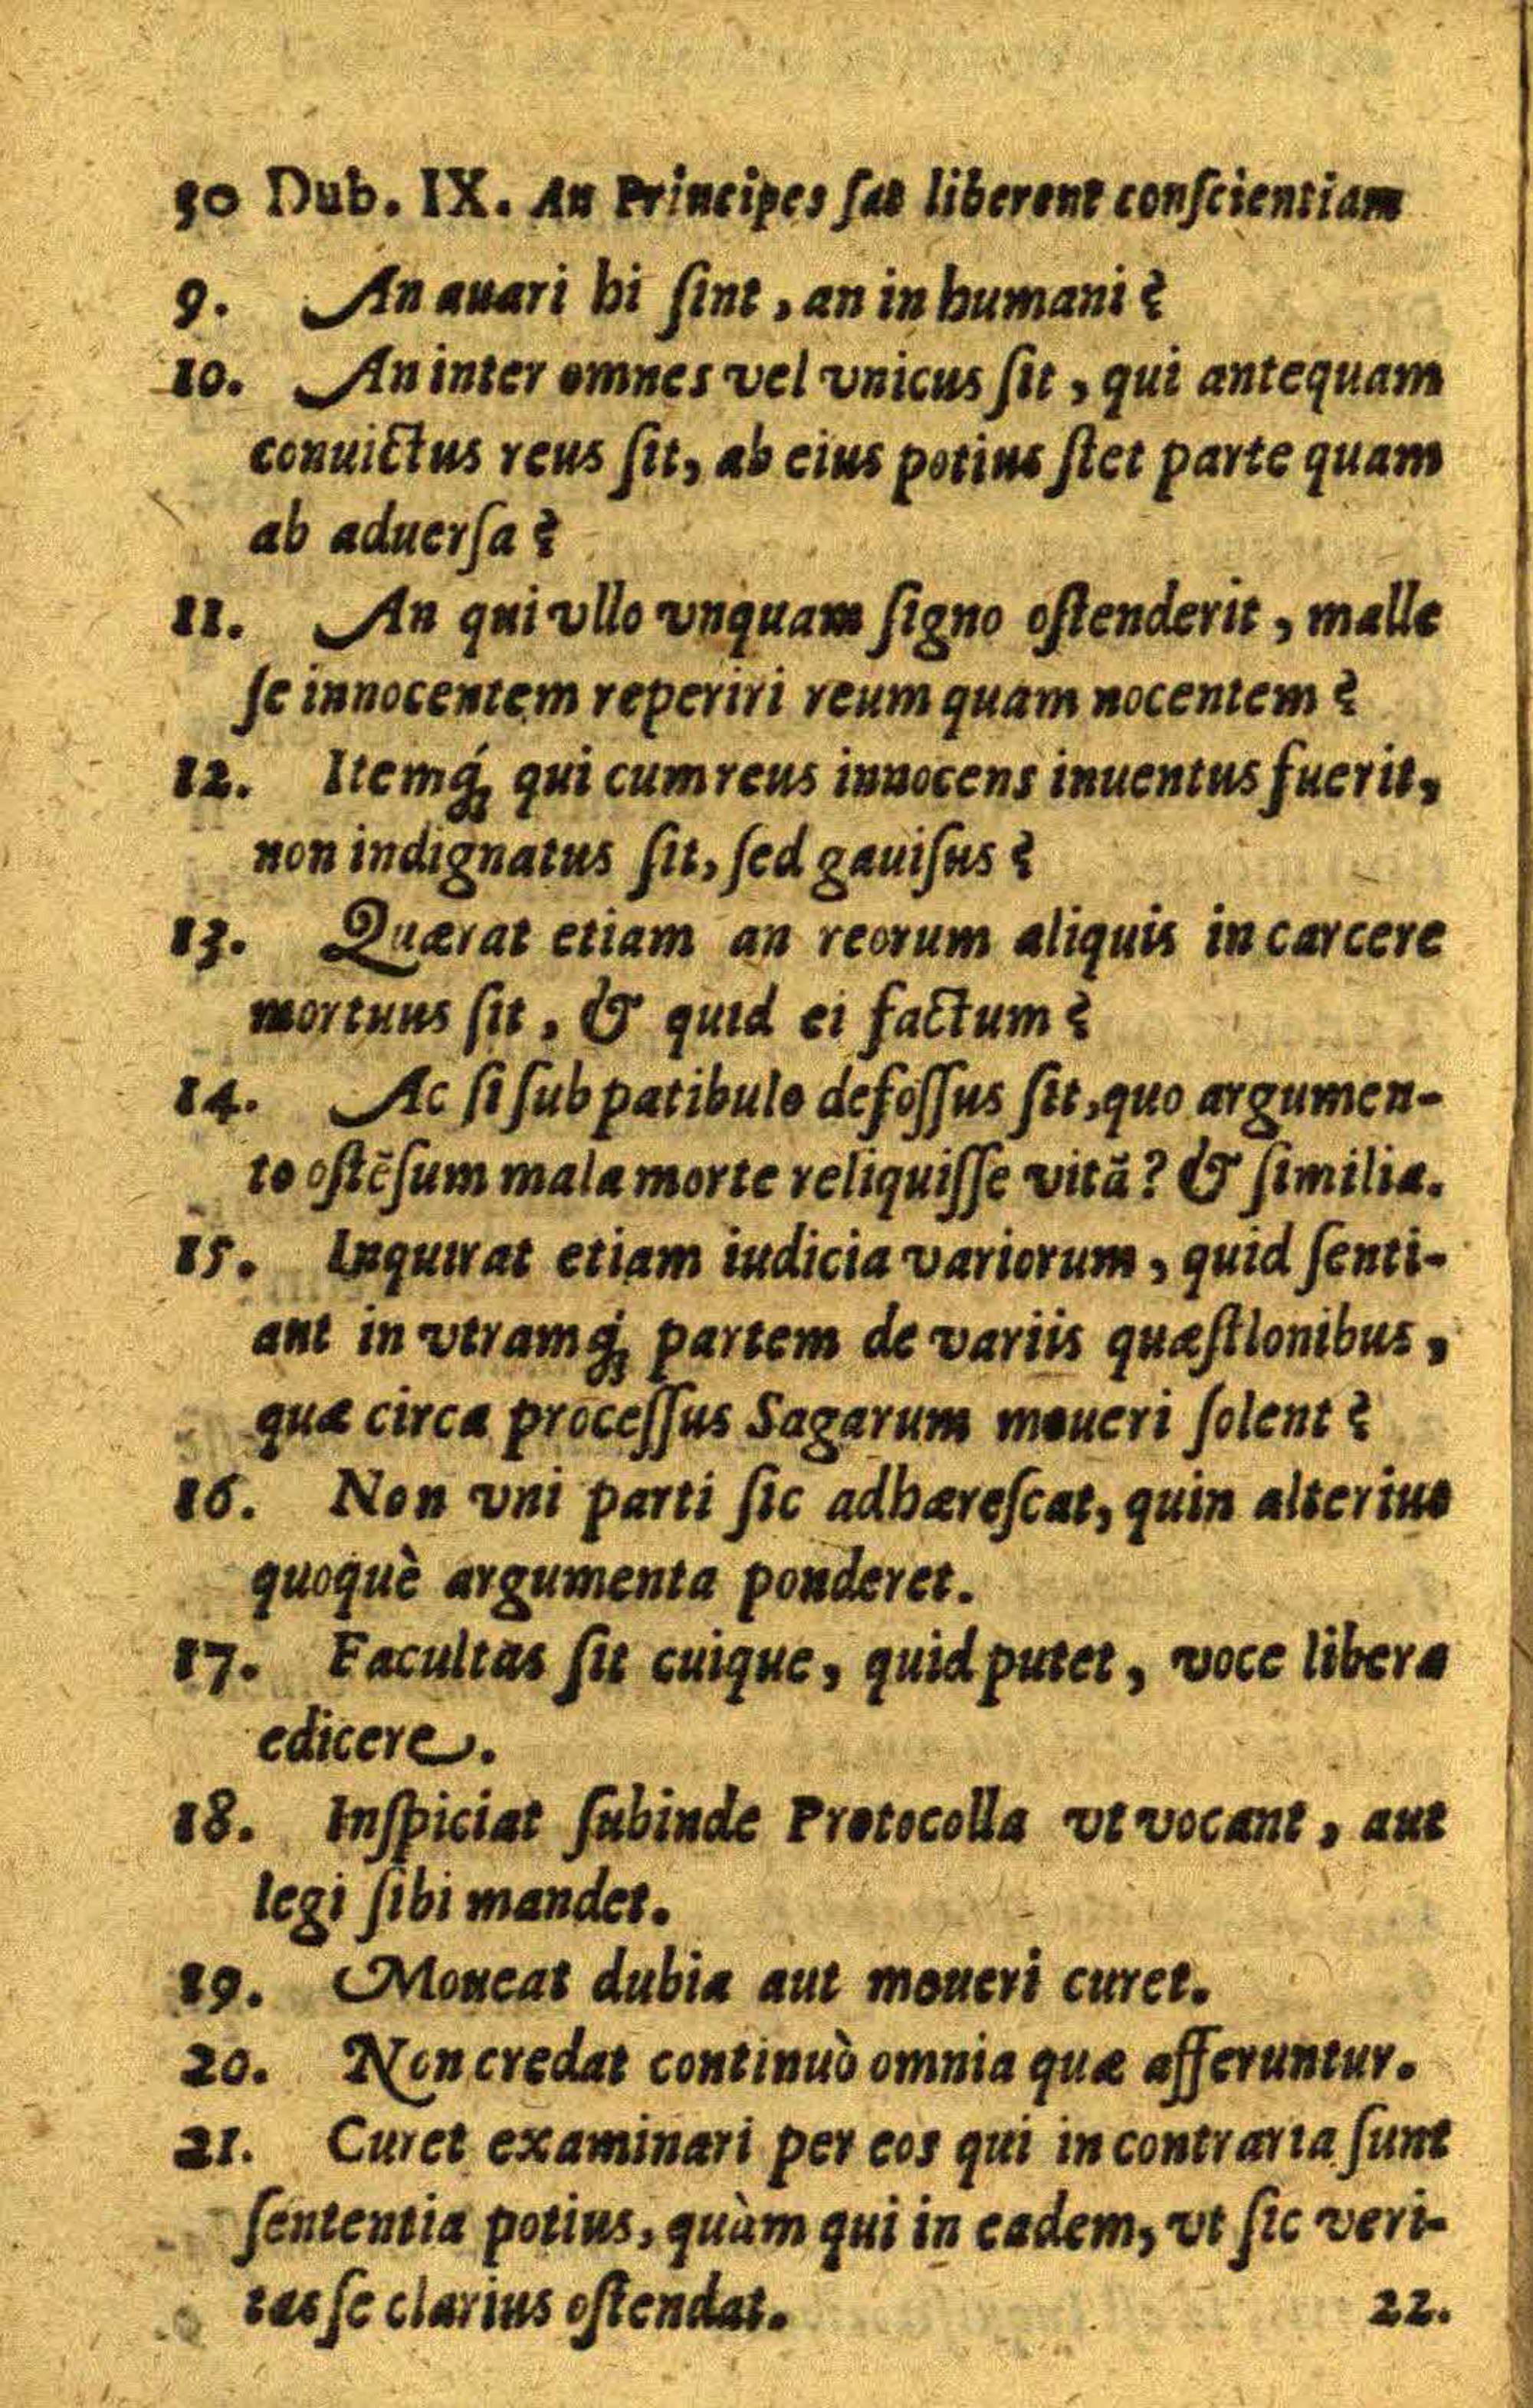 50 Dub. IX. An Principes sat liberent conscientiam
9. An auari hi ſint, an in humani?
10. An inter omnes vel vnicus ſit, qui antequam
conuictus reus ſit, ab eius potius ſtet parte quam
ab aduerſa?
11. An qui vllo vnquam ſigno oſtenderit, malle
ſe innocentem reperiri reum quam nocentem?
12. Itemq́; qui cum reus innocens inuentus fuerit,
non indignatus ſit, ſed gauiſus?
13. Quærat etiam an reorum aliquis in carcere
mortuus ſit, & quid ei factum?
14. Ac ſi ſub patibulo defoſſus ſit, quo argumen-
to oſtẽſum mala morte reliquiſſe vitã? & ſimilia.
15. Inquirat etiam iudicia variorum, quid ſenti-
ant in vtramq́; partem de variis quæſtlonibus,
quæ circa proceſſus Sagarum moueri ſolent?
16. Non vni parti ſic adhæreſcat, quin alterius
quoquè argumenta ponderet.
17. Facultas ſit cuique, quid putet, voce libera
edicere.
18. Inſpiciat ſubinde Protocolla vt vocant, aut
legi ſibi mandet.
19. Moueat dubia aut moueri curet.
20. Non credat continuò omnia quæ afferuntur.
21. Curet examinari per eos qui in contraria ſunt
ſententia potius, quàm qui in eadem, vt ſic veri-
tas ſe clarius oſtendat. 22.